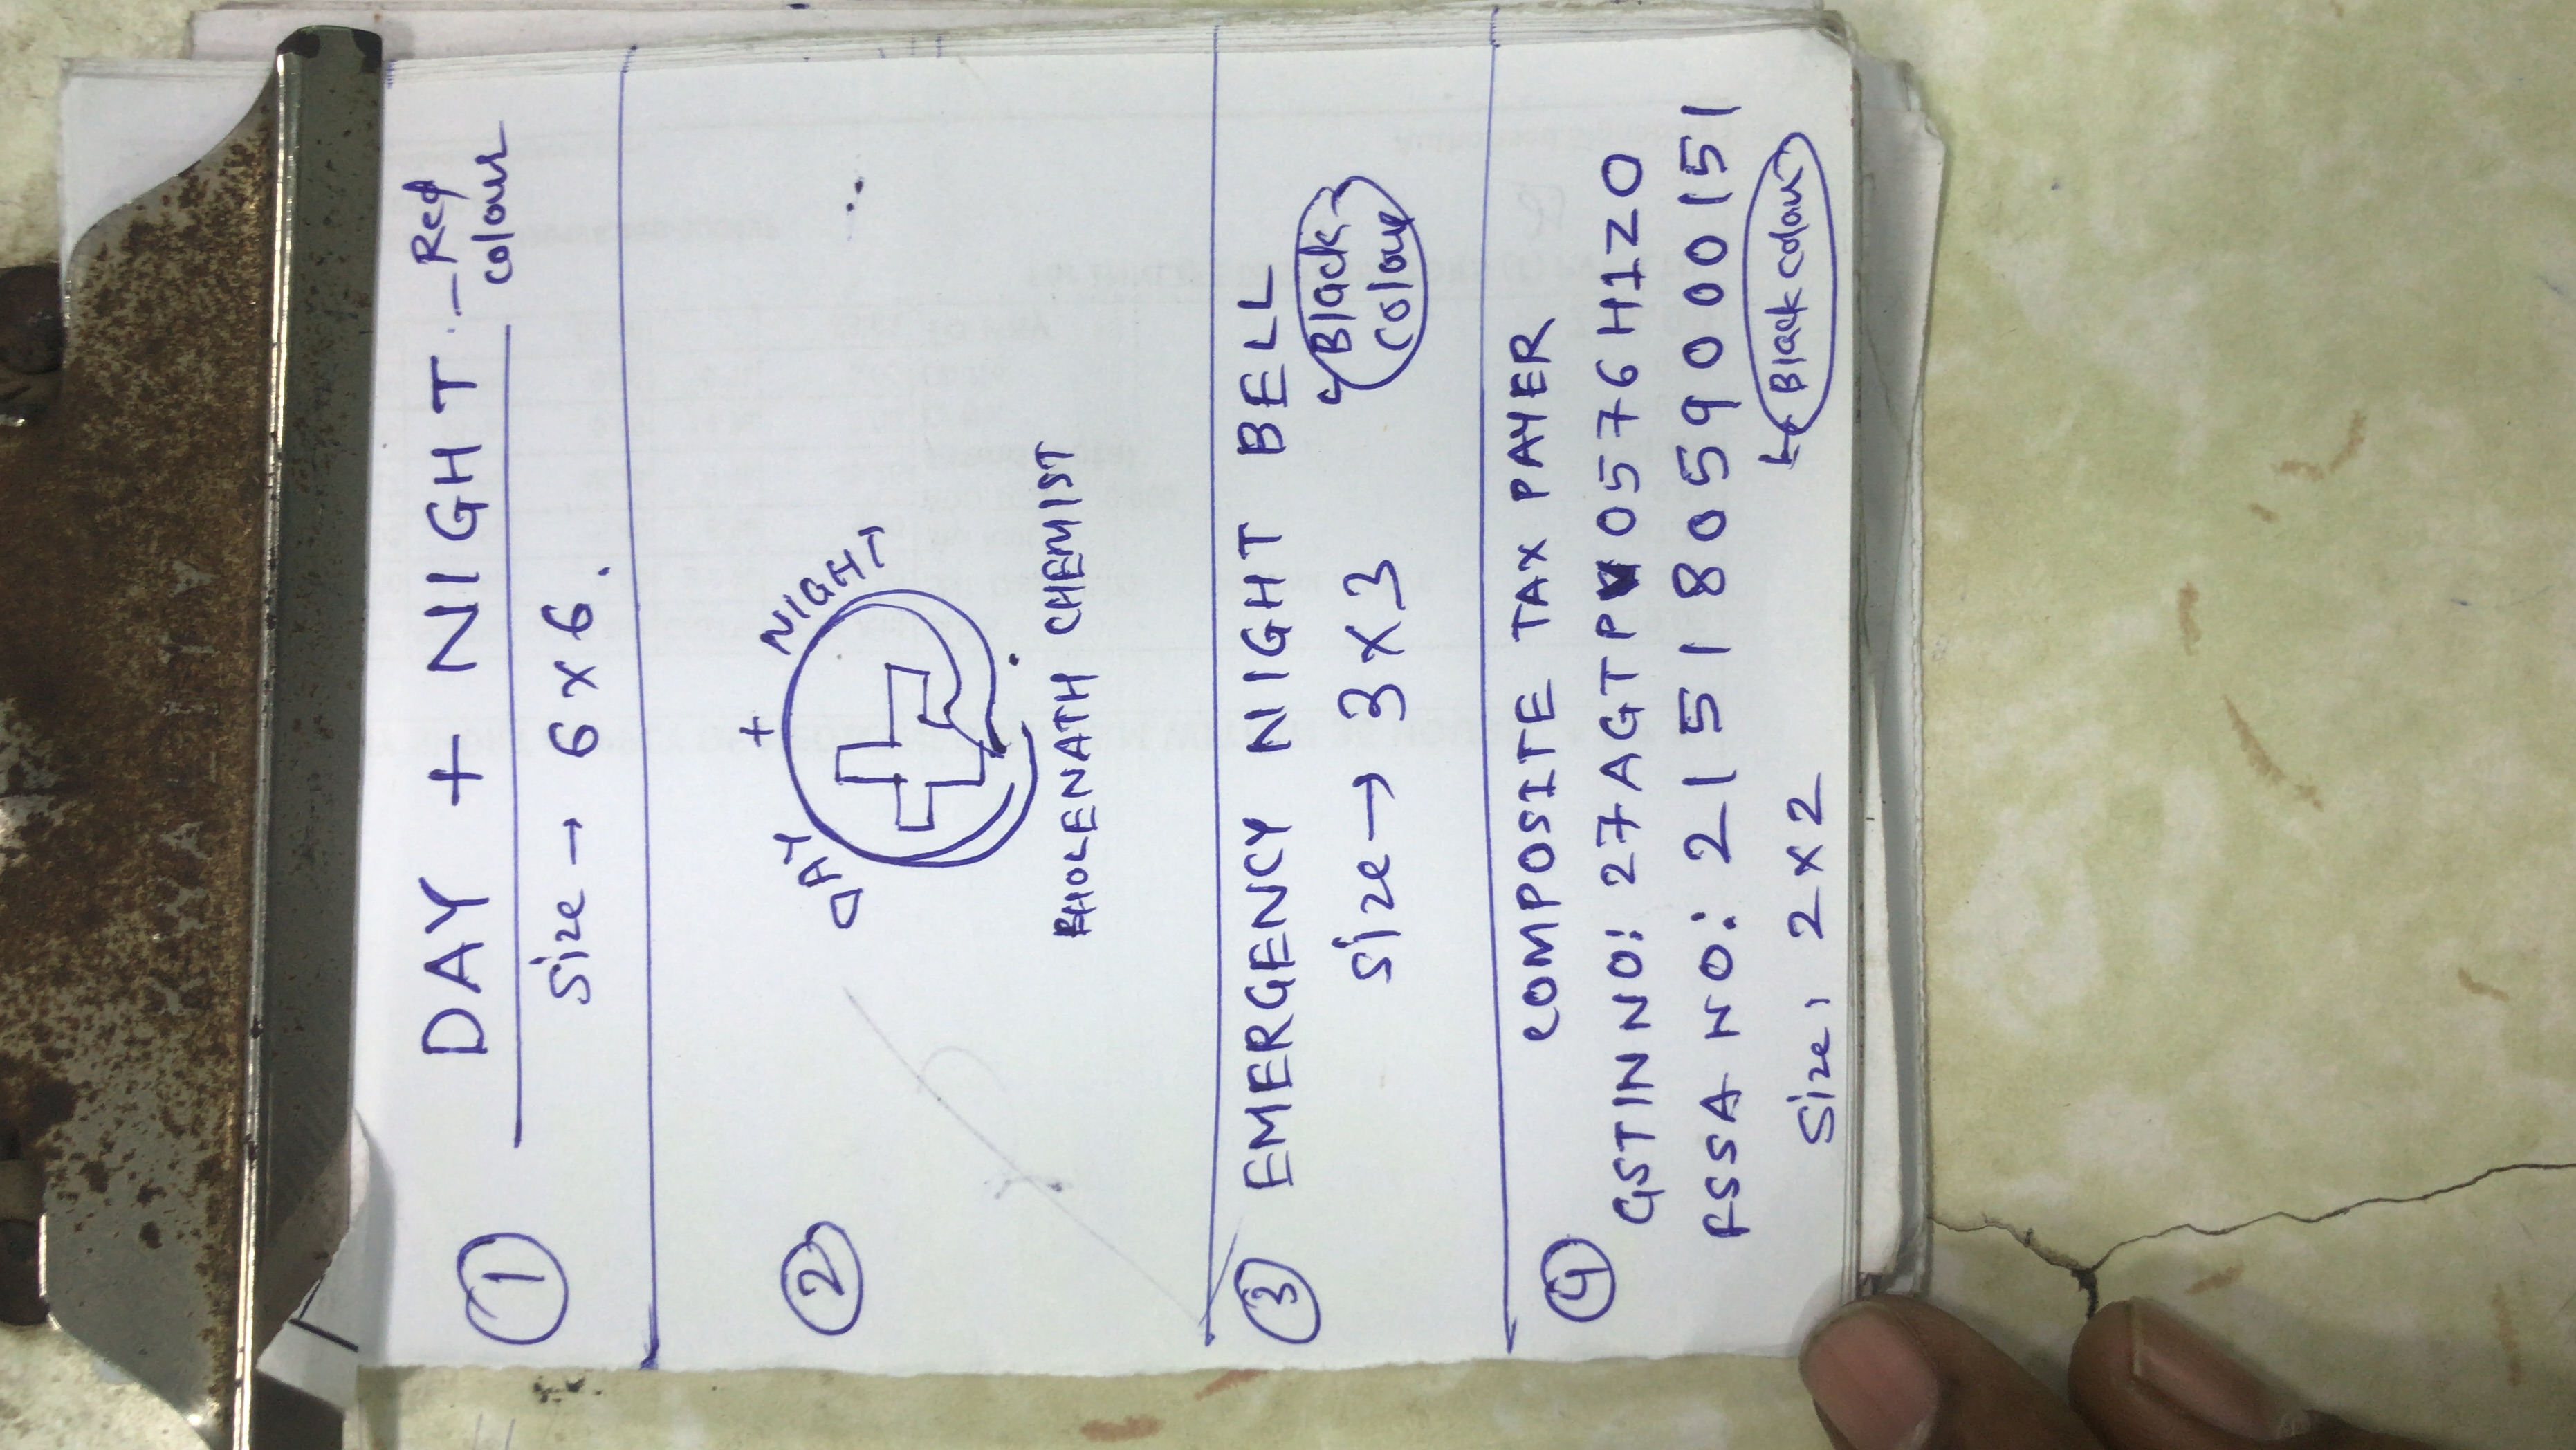 KWALITY
1 DAY + NIGHT - Red
colour
Size → 6 x 6.
2
DAY + NIGHT
BHOLENATH CHEMIST
3 EMERGENCY NIGHT BELL
Size → 3 x 3
Black
colour
4 COMPOSITE TAX PAYER
GSTIN NO: 27AGTPV0576H1ZO
FSSA NO: 21518059000151
Size: 2 x 2
Black colour